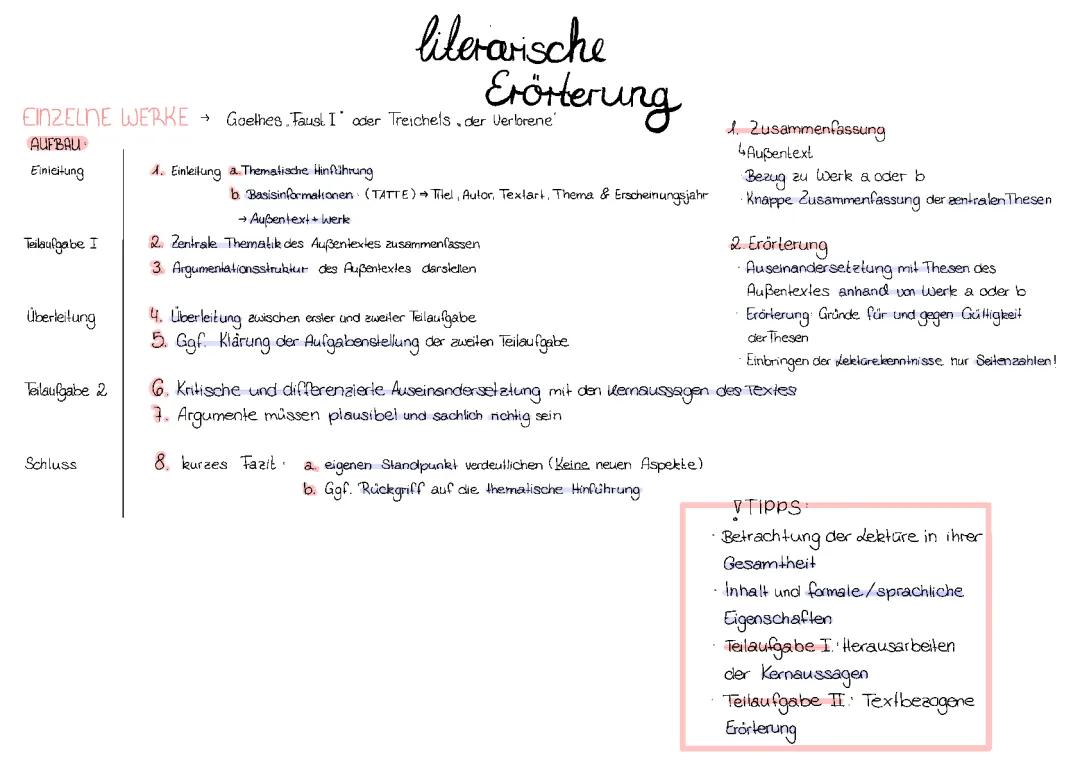 literarische
Erörterung
EINZELNE WERKE → Goethes „Faust I" oder Treichels „der Verlorene"
AUFBAU:
Einleitung
1. Einleitung a. Thematische Hinführung
b. Basisinformationen: (TATTE) → Titel, Autor, Textart, Thema & Erscheinungsjahr
→ Außentext + Werk
Teilaufgabe I
2. Zentrale Thematik des Außentextes zusammenfassen
3. Argumentationsstruktur des Außentextes darstellen
Überleitung
4. Überleitung zwischen erster und zweiter Teilaufgabe
5. Ggf. Klärung der Aufgabenstellung der zweiten Teilaufgabe
Teilaufgabe 2
6. Kritische und differenzierte Auseinandersetztung mit den Kernaussagen des Textes
7. Argumente müssen plausibel und sachlich richtig sein
Schluss
8. kurzes Fazit: a. eigenen Standpunkt verdeutlichen (Keine neuen Aspekte)
b. Ggf. Rückgriff auf die thematische Hinführung
1. Zusammenfassung
↳ Außentext
· Bezug zu Werk a oder b
· Knappe Zusammenfassung der zentralen Thesen
2. Erörterung
· Auseinandersetztung mit Thesen des
Außentextes anhand von Werk a oder b
· Erörterung: Gründe für und gegen Gültigkeit
der Thesen
· Einbringen der Lektürekenntnisse, nur Seitenzahlen!
! TIPPS:
· Betrachtung der Lektüre in ihrer
Gesamtheit
· Inhalt und formale/sprachliche
Eigenschaften
· Teilaufgabe I: Herausarbeiten
der Kernaussagen
· Teilaufgabe II: Textbezogene
Erörterung